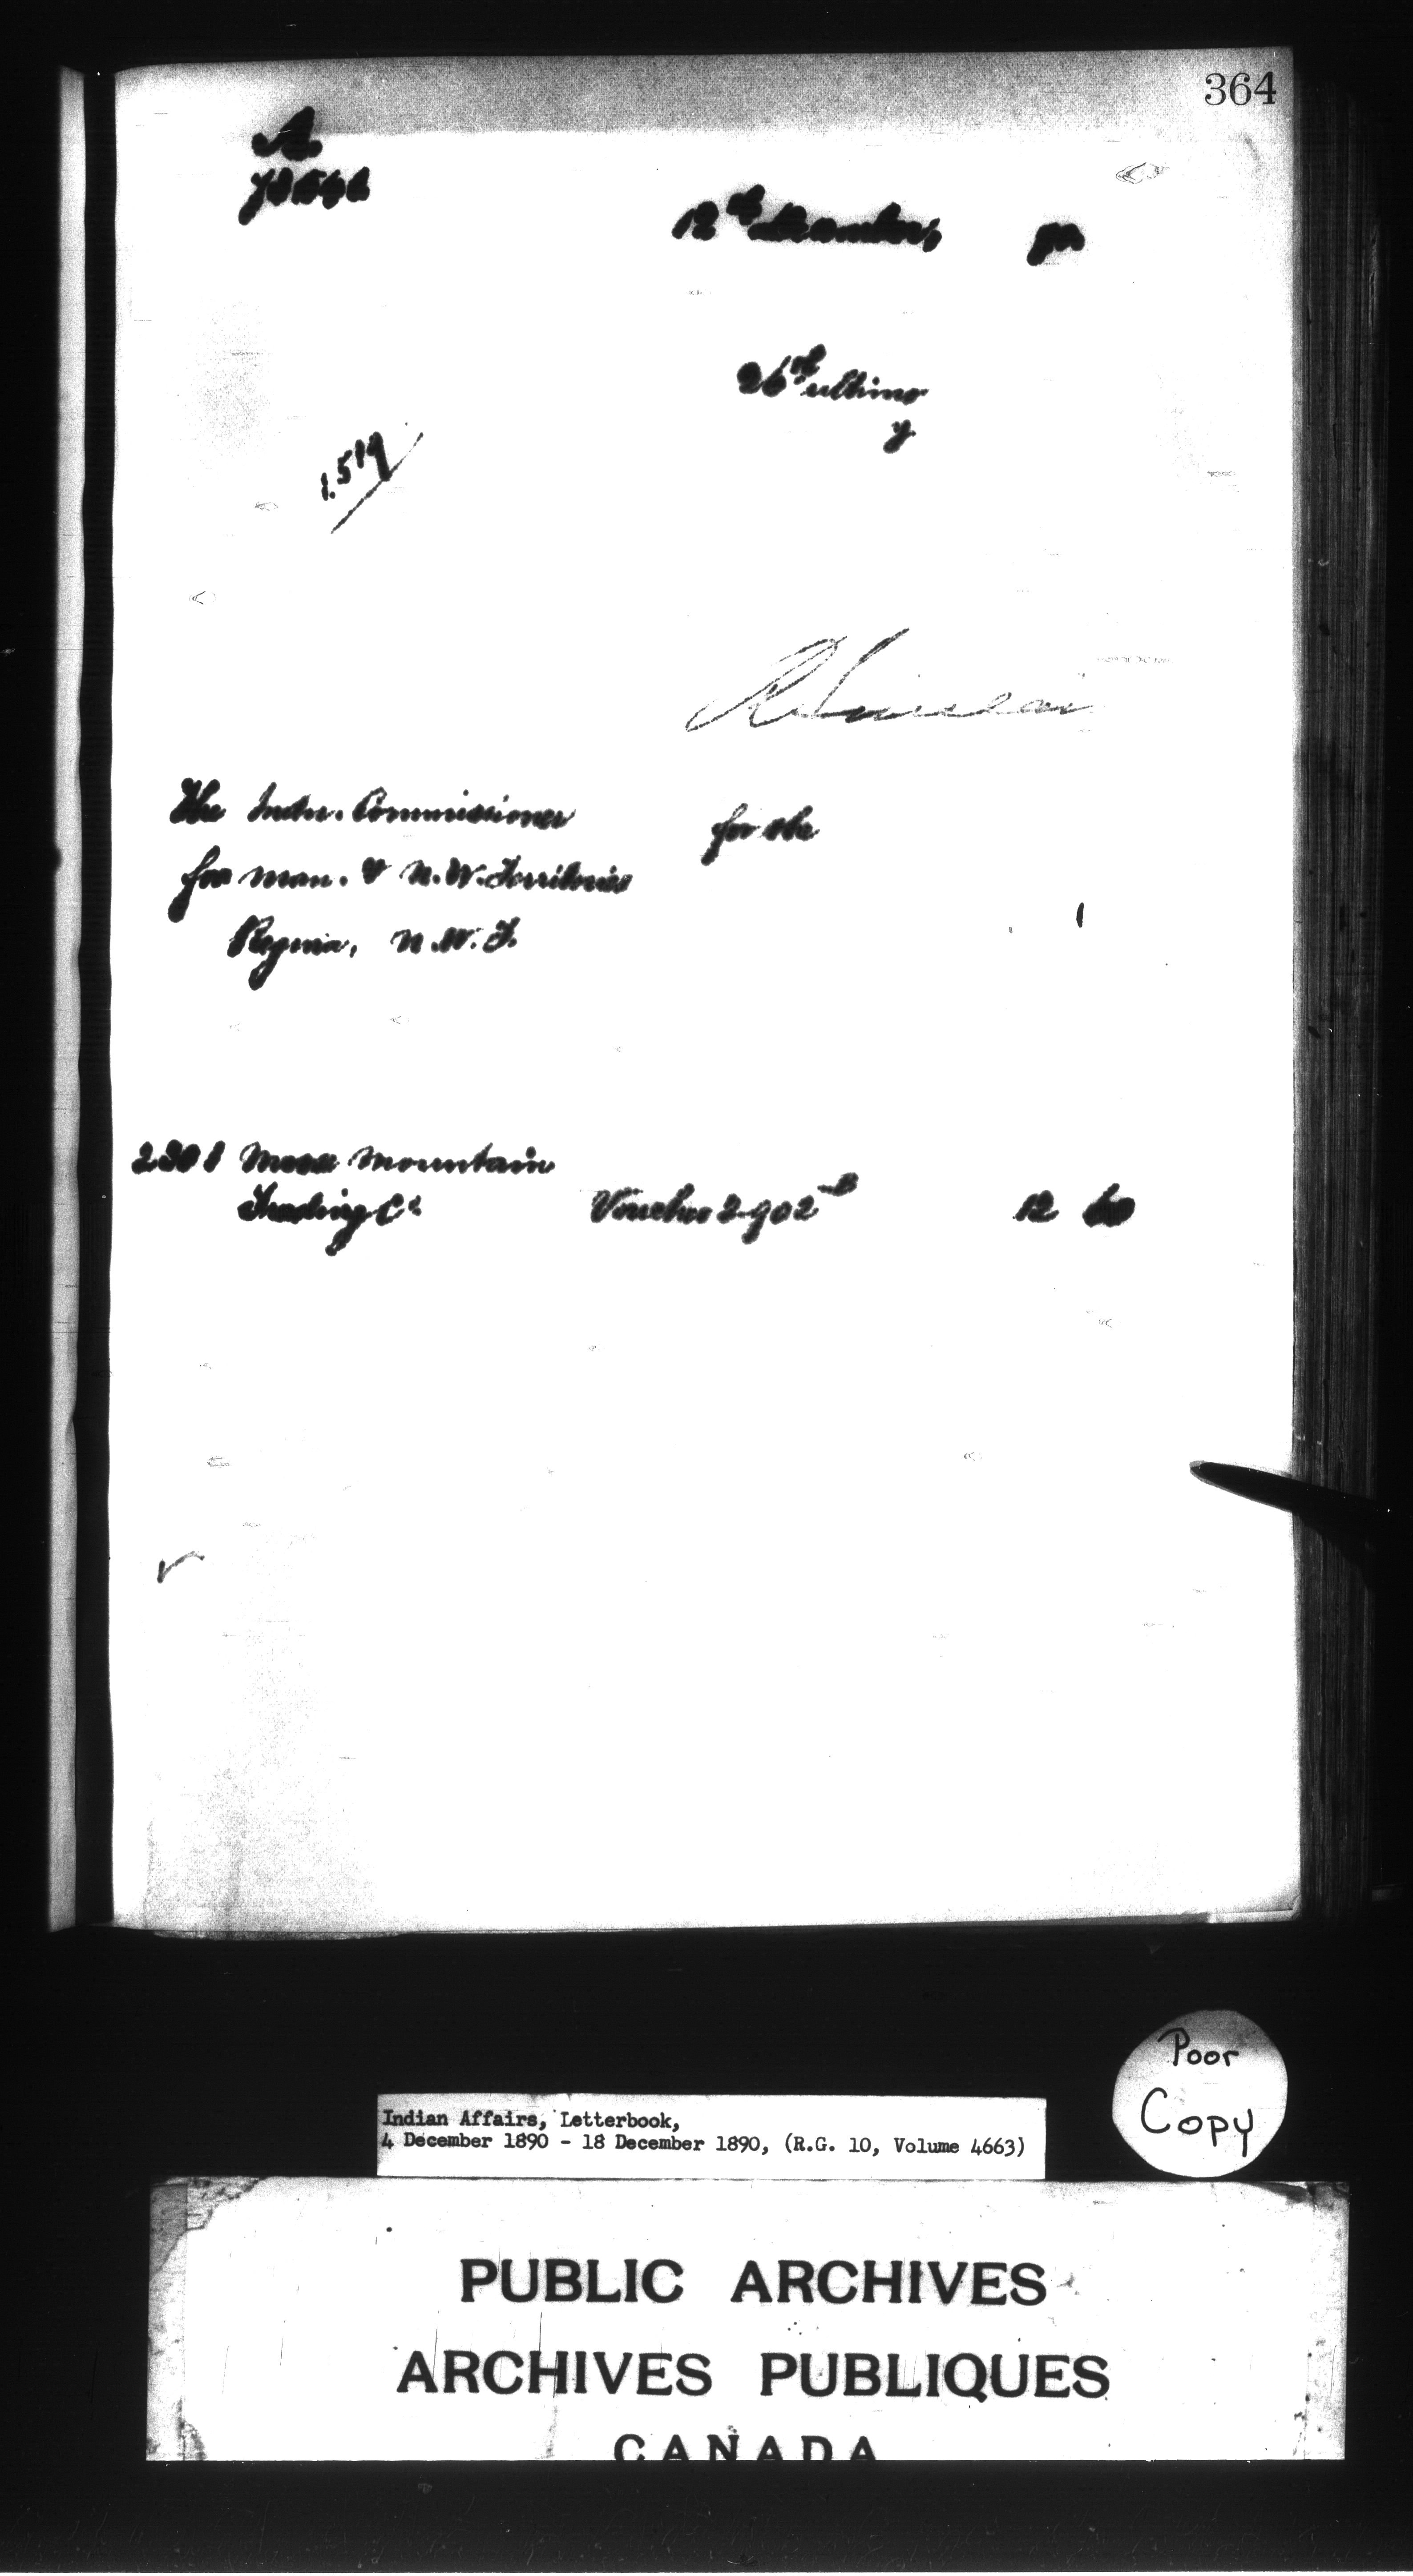 364
A
12th December, 90
26th ultimo
y
1.519
The Indn. Commissioner
for Man. & N.W. Territories
Regina, N.W.T.
for the
2301 Moose Mountain
Trading Co
Voucher 2902
12 60
Poor
Copy
Indian Affairs, Letterbook,
4 December 1890 - 18 December 1890, (R.G. 10, Volume 4663)
PUBLIC ARCHIVES
ARCHIVES PUBLIQUES
CANADA